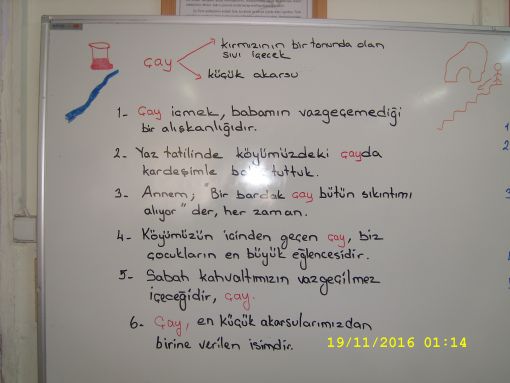 kırmızının bir tonunda olan
sıvı içecek
çay
küçük akarsu
1- Çay içmek, babamın vazgeçemediği
bir alışkanlığıdır.
2- Yaz tatilinde köyümüzdeki çayda
kardeşimle tuttuk.
3- Annem; "Bir bardak çay bütün sıkıntımı
alıyor" der, her zaman.
4- Köyümüzün içinden geçen çay, biz
çocukların en büyük eğlencesidir.
5- Sabah kahvaltımızın vazgeçilmez
içeceğidir, çay.
6- Çay, en küçük akarsularımızdan
birine verilen isimdir.
19/11/2016 01:14